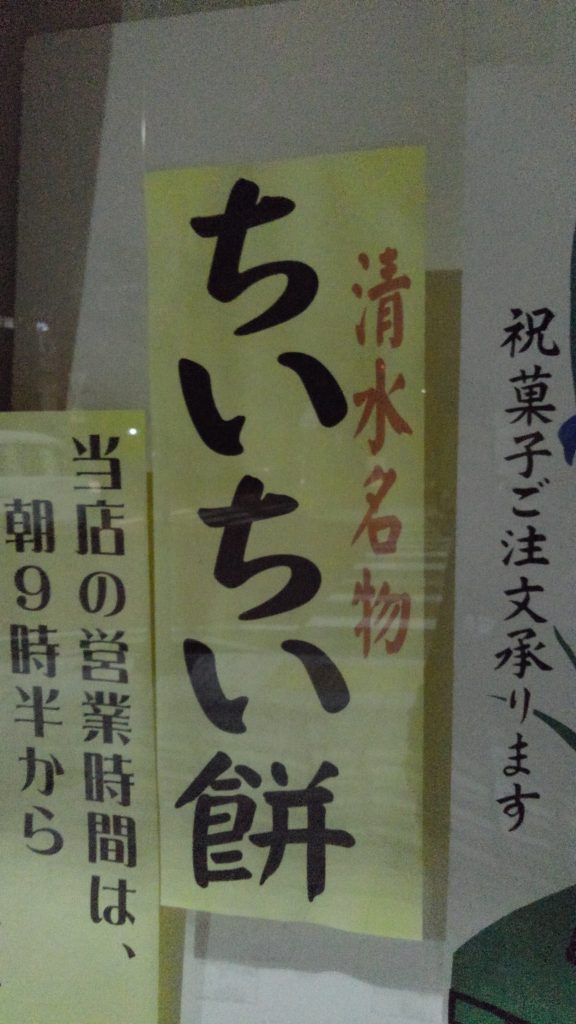 祝菓子ご注文承ります
清水名物
ちいちい餅
当店の営業時間は、
朝9時半から